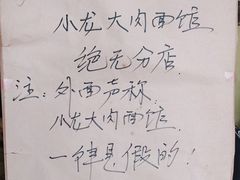 小龙大肉面馆
绝无分店
注：外面声称
小龙大肉面馆
一律是假的！